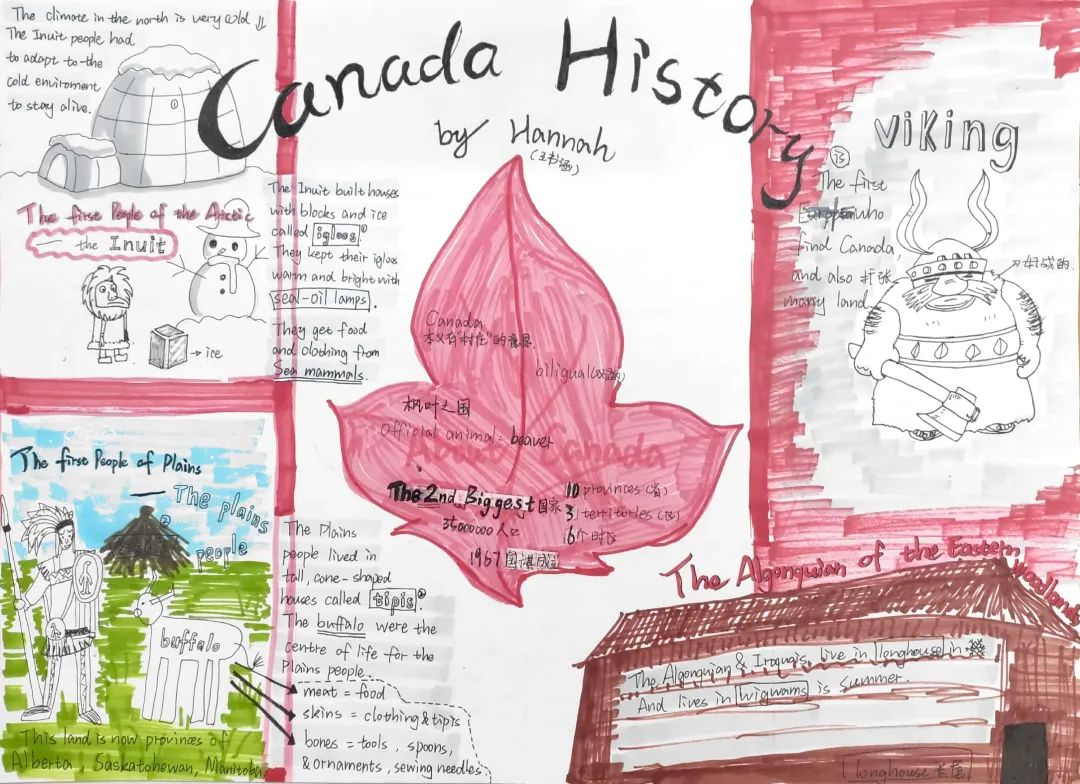 Canada History
by Hannah
The climate in the north is very cold ↓
The Inuit people had
to adapt to the
cold enviroment
to stay alive.
①
The first People of the Arctic
— the Inuit
→ ice
The Inuit built houses
with blocks and ice
called igloos①.
They kept their igloos
warm and bright with
seal-oil lamps.
They get food
and clothing from
Sea mammals.
Canada
本义有"村庄"的意思.
biligual(双语的)
枫叶之国
Official animal: beaver
About Canada
The 2nd Biggest国家
35000000 人口
1967国旗成立
10 provinces (省)
3 territories (区)
6个时区
viking
The first
who
find Canada,
and also 扩张
many land
The first People of Plains
— The plains
people
②
buffalo
This land is now provinces of
Alberta, Saskatohewan, Manitoba
The Plains
people lived in
tall, cone-shaped
houses called tipis②.
The buffalo were the
centre of life for the
Plains people.
meat = food
skins = clothing & tipis
bones = tools, spoons,
& ornaments, sewing needles.
The Algonquian of the Eastern
woodlands
The Algonquian & Iroquois, live in longhouse in
And lives in wigwams is summer.
longhouse 长屋